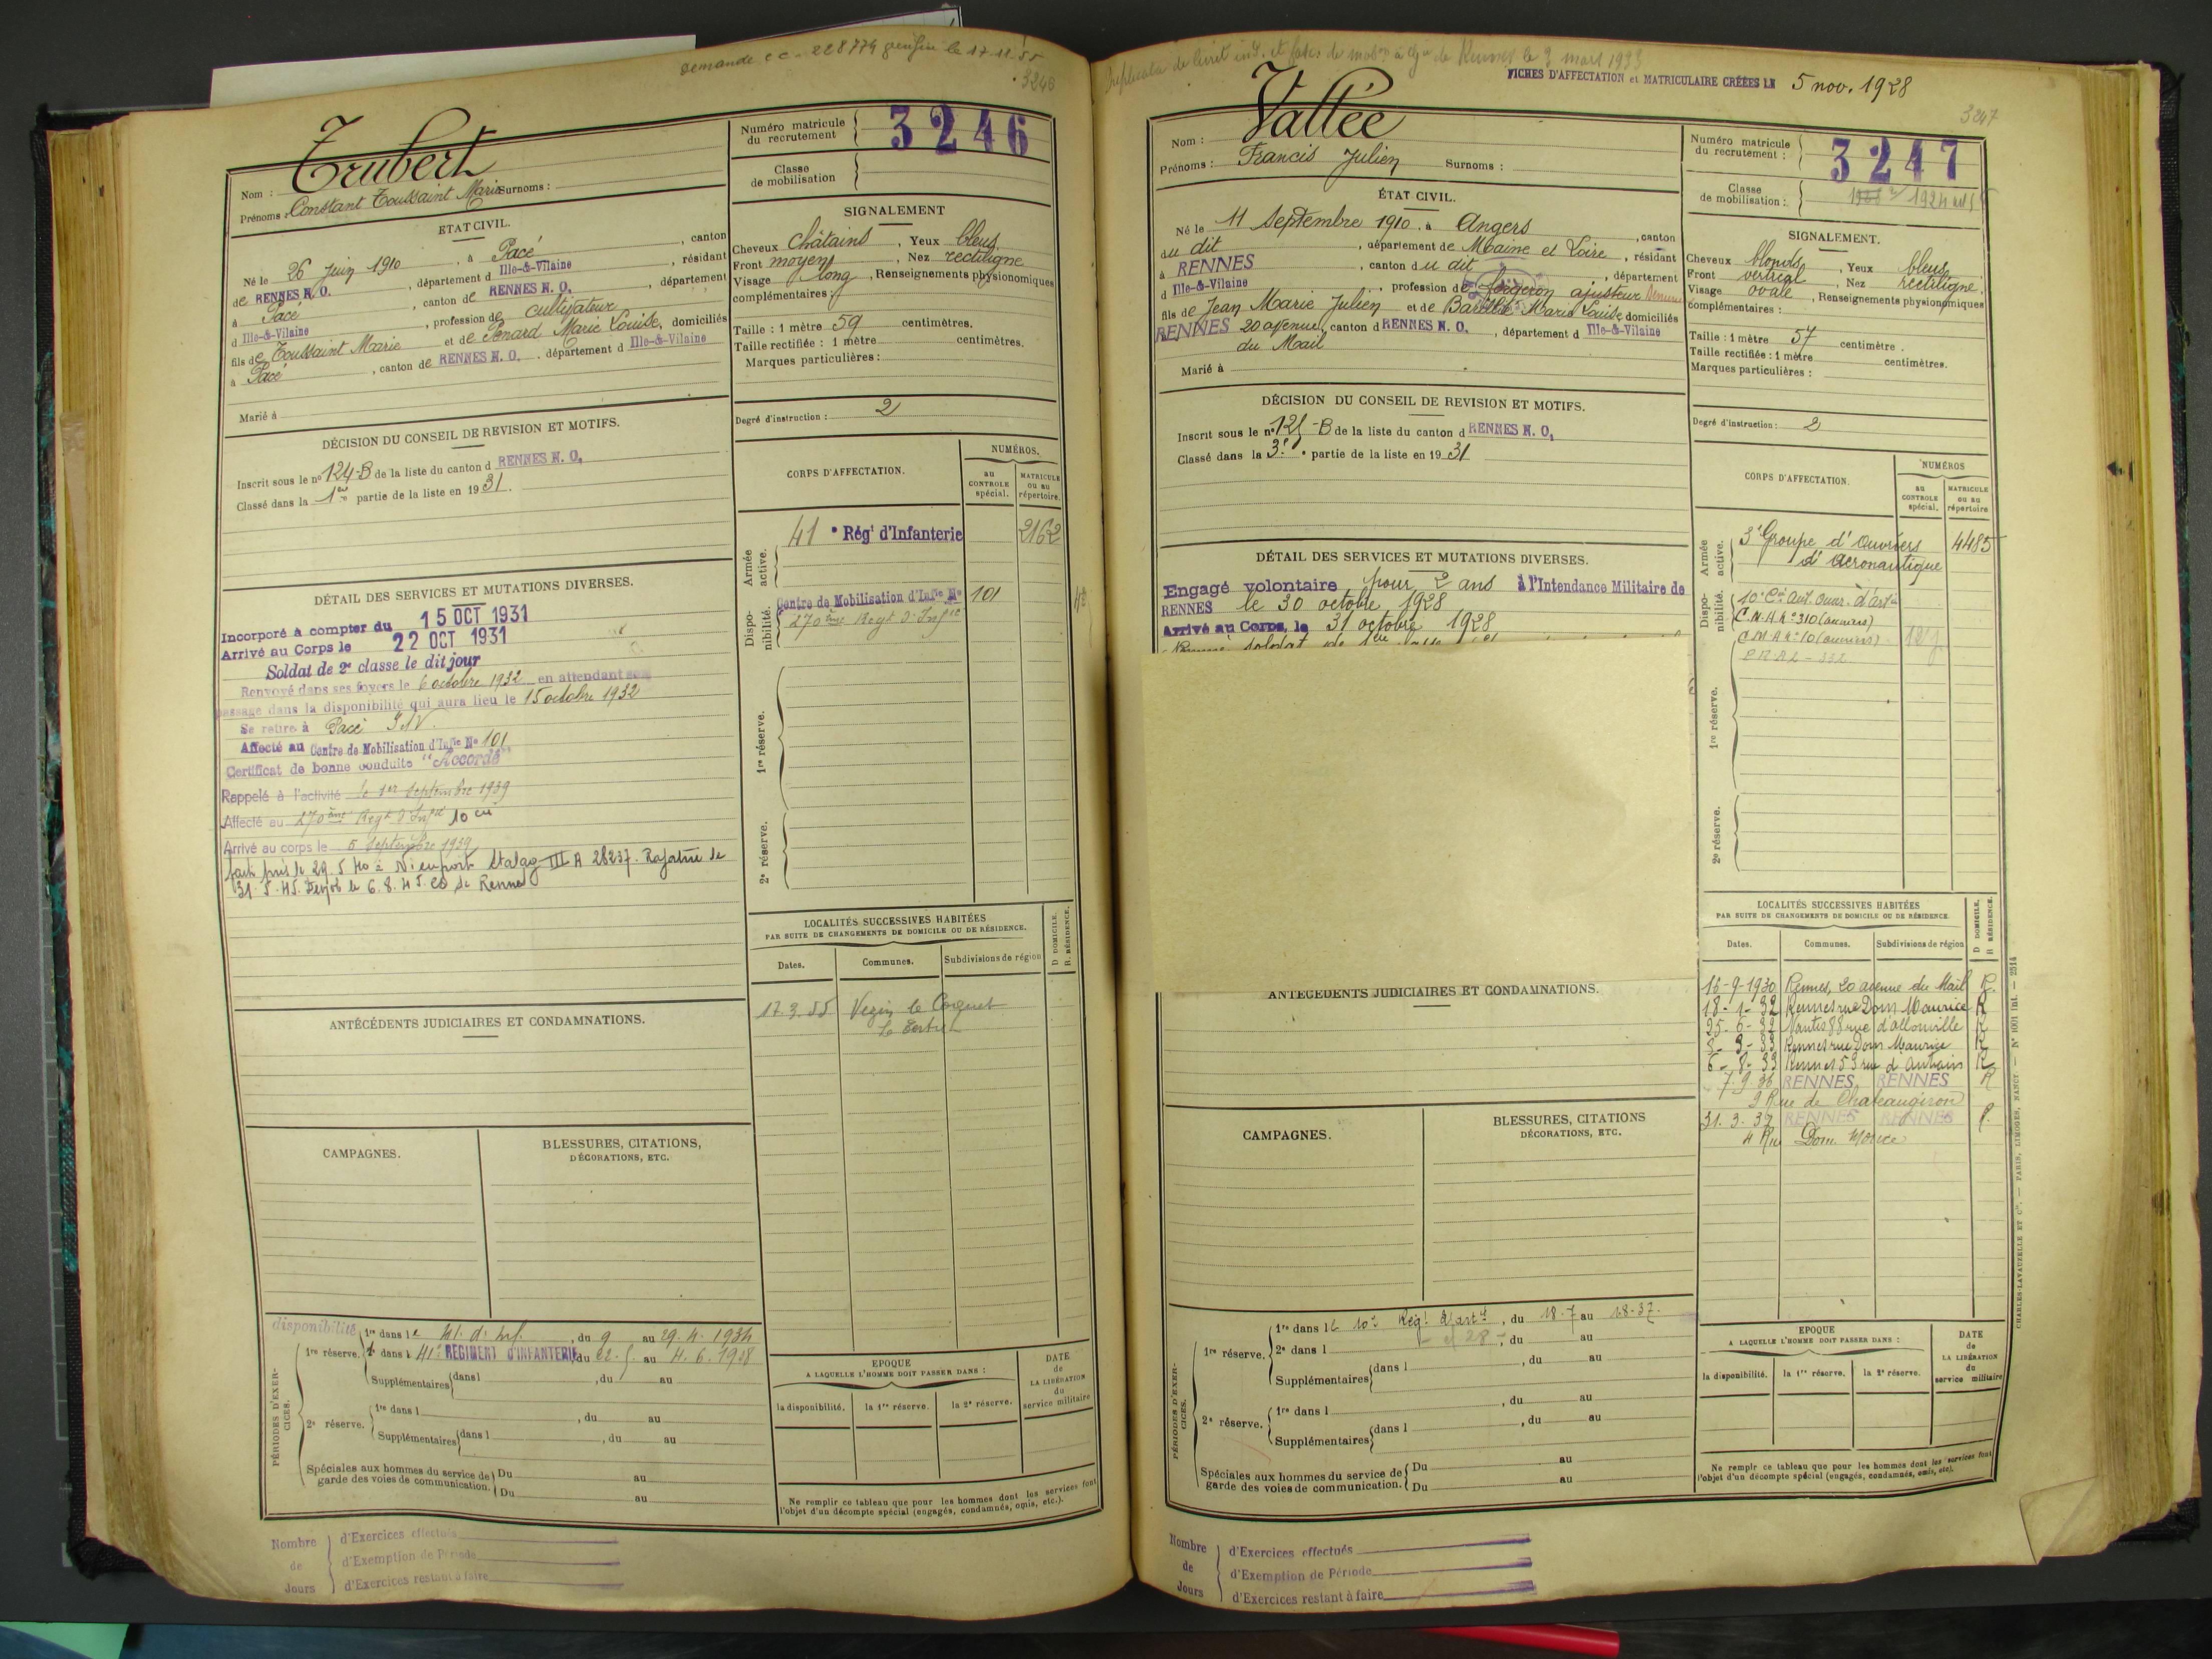 demande cc - 228774 le 17-11-55
3246
Trubert
Nom :
Prénoms : Constant Toussaint Marie Surnoms :
Numéro matricule du recrutement
3246
Classe de mobilisation
ETAT CIVIL.
Né le 26 juin 1910, à Pacé, canton
de RENNES N. O., département d Ille-&-Vilaine, résidant
à Pacé, canton de RENNES N. O., département
d Ille-&-Vilaine, profession de cultivateur
fils de Toussaint Marie et de Penard Marie Louise, domiciliés
à Pacé, canton de RENNES N. O., département d Ille-&-Vilaine
Marié à
SIGNALEMENT
Cheveux châtains, Yeux bleus
Front moyen, Nez rectiligne
Visage long, Renseignements physionomiques
complémentaires :
Taille : 1 mètre 59 centimètres.
Taille rectifiée : 1 mètre centimètres.
Marques particulières :
Degré d'instruction : 2
DÉCISION DU CONSEIL DE REVISION ET MOTIFS.
Inscrit sous le nº 124-B de la liste du canton d RENNES N. O.
Classé dans la 1re partie de la liste en 1931.
DÉTAIL DES SERVICES ET MUTATIONS DIVERSES.
Incorporé à compter du 15 OCT 1931
Arrivé au Corps le 22 OCT 1931
Soldat de 2e classe le dit jour
Renvoyé dans ses foyers le 6 octobre 1932 en attendant son
passage dans la disponibilité qui aura lieu le 15 octobre 1932
Se retire à Pacé I&V.
Affecté au Centre de Mobilisation d'Infie Nº 101
Certificat de bonne conduite "Accordé"
Rappelé à l'activité le 1er septembre 1939
Affecté au 270ème Regt d'Infie 10 cie
Arrivé au corps le 5 Septembre 1939
fait pris le 29.5.40 à Nieuport Stalag III A 28237. Rapatrié le
31.5.45. le 6.8.45. de Rennes
CORPS D'AFFECTATION.
NUMÉROS.
au CONTROLE spécial.
MATRICULE ou au répertoire.
Armée active.
41e Régt d'Infanterie 2162
Disponibilité.
Centre de Mobilisation d'Infie Nº 101
270ème Regt d'Infie
1re réserve.
2e réserve.
LOCALITÉS SUCCESSIVES HABITÉES
PAR SUITE DE CHANGEMENTS DE DOMICILE OU DE RÉSIDENCE.
D DOMICILE.
R. RÉSIDENCE.
Dates. Communes. Subdivisions de région
17.3.55 Vezin le Coquet
Le
ANTÉCÉDENTS JUDICIAIRES ET CONDAMNATIONS.
CAMPAGNES.
BLESSURES, CITATIONS,
DÉCORATIONS, ETC.
PÉRIODES D'EXERCICES.
disponibilité
1re réserve. 1re dans le 41. d'Inf., du 9 au 29.4.1934
2e dans l 41e REGIMENT D'INFANTERIE, du 22.5. au 4.6.1938
Supplémentaires dans l, du au
2e réserve. 1re dans l, du au
Supplémentaires dans l, du au
Spéciales aux hommes du service de garde des voies de communication. Du au
Du au
EPOQUE
A LAQUELLE L'HOMME DOIT PASSER DANS :
la disponibilité. la 1re réserve. la 2e réserve.
DATE de LA LIBÉRATION du service militaire
Ne remplir ce tableau que pour les hommes dont les services font
l'objet d'un décompte spécial (engagés, condamnés, omis, etc.).
Nombre de Jours
d'Exercices effectués
d'Exemption de Période
d'Exercices restant à faire
Duplicata de livret ind. et fasc. de mobon à Gie de Rennes le 3 mars 1933
FICHES D'AFFECTATION et MATRICULAIRE CRÉÉES LE 5 nov. 1928
3247
Vallée
Nom :
Prénoms : Francis Julien Surnoms :
Numéro matricule du recrutement :
3247
Classe de mobilisation :
1928 1924
ÉTAT CIVIL.
Né le 11 Septembre 1910, à Angers, canton
du dit, département de Maine et Loire, résidant
à RENNES, canton du dit, département
d Ille-&-Vilaine, profession de forgeron ajusteur
fils de Jean Marie Julien et de Marie Louise, domiciliés
RENNES 20 avenue, canton d RENNES N. O., département d Ille-&-Vilaine
du Mail
Marié à
SIGNALEMENT.
Cheveux blonds, Yeux bleus
Front vertical, Nez rectiligne,
Visage ovale, Renseignements physionomiques
complémentaires :
Taille : 1 mètre 57 centimètre.
Taille rectifiée : 1 mètre centimètres.
Marques particulières :
Degré d'instruction : 2
DÉCISION DU CONSEIL DE REVISION ET MOTIFS.
Inscrit sous le nº 125-B de la liste du canton d RENNES N. O.
Classé dans la 3e partie de la liste en 1931
DÉTAIL DES SERVICES ET MUTATIONS DIVERSES.
Engagé volontaire pour 2 ans à l'Intendance Militaire de
RENNES le 30 octobre 1928
Arrivé au Corps, le 31 octobre 1928
CORPS D'AFFECTATION.
NUMÉROS
au CONTROLE spécial.
MATRICULE ou au répertoire
Armée active.
3e Groupe d'Ouvriers d'Aéronautique 4485
Disponibilité.
10e Cie Aut. Ouvr. d'artie
C.M.A. nº 310 (ouvriers)
C.M.A nº 10 (ouvriers)
1re réserve.
2e réserve.
LOCALITÉS SUCCESSIVES HABITÉES
PAR SUITE DE CHANGEMENTS DE DOMICILE OU DE RÉSIDENCE.
D DOMICILE.
R RÉSIDENCE.
Dates. Communes. Subdivisions de région
13-9-1930 Rennes, 20 avenue du Mail R.
18-1-32 Rennes rue Dom Maurice R
25-6-32 Nantes 88 rue d'allonville R
8-3-33 Rennes rue Dom Maurice R
6-8-33 Rennes 53 rue d'Antrain R
7.9.36 RENNES RENNES R
9 Rue de Chateaugiron
31.3.37 RENNES RENNES R
4 Rue Dom Morice
ANTÉCÉDENTS JUDICIAIRES ET CONDAMNATIONS.
CAMPAGNES.
BLESSURES, CITATIONS
DÉCORATIONS, ETC.
PÉRIODES D'EXERCICES.
1re réserve. 1re dans le 10e Régt d'artie, du 18-7 au 1-8-37.
2e dans l, du au
Supplémentaires dans l, du au
2e réserve. 1re dans l, du au
Supplémentaires dans l, du au
Spéciales aux hommes du service de garde des voies de communication. Du au
Du au
EPOQUE
A LAQUELLE L'HOMME DOIT PASSER DANS :
la disponibilité. la 1re réserve. la 2e réserve.
DATE de LA LIBÉRATION du service militaire
Ne remplir ce tableau que pour les hommes dont les services font
l'objet d'un décompte spécial (engagés, condamnés, omis, etc).
CHARLES-LAVAUZELLE ET Cie. — PARIS, LIMOGES, NANCY. — Nº 1001 Int. — 2514
Nombre de Jours
d'Exercices effectués
d'Exemption de Période
d'Exercices restant à faire